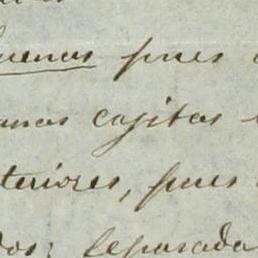 buenas pues
anas cajitas
teriores, pues
dos; separada